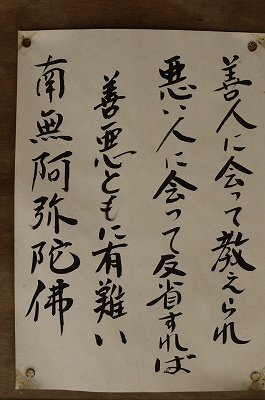 善人に会って教えられ
悪い人に会って反省すれば
善悪ともに有難い
南無阿弥陀佛